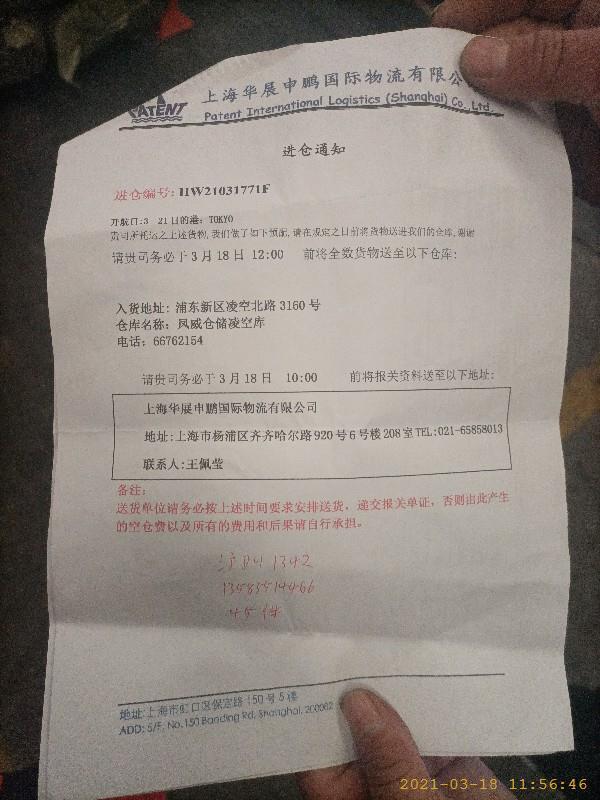 2021-03-18 11:56:46
PATENT
上海华展申鹏国际物流有限公
Patent International Logistics (Shanghai) Co., Ltd.
进仓通知
进仓编号: HW21031771F
开航日:3 21日的港: TOKYO
贵司所托运之上述货物, 我们做了如下预配, 请在规定之日前将货物送进我们的仓库, 谢谢
请贵司务必于 3 月 18 日 12:00 前将全数货物送至以下仓库:
入货地址: 浦东新区凌空北路 3160 号
仓库名称: 凤威仓储凌空库
电话: 66762154
请贵司务必于 3 月 18 日 10:00 前将报关资料送至以下地址:
上海华展申鹏国际物流有限公司
地址:上海市杨浦区齐齐哈尔路 920 号 6 号楼 208 室 TEL:021-65858013
联系人:王佩莹
备注:
送货单位请务必按上述时间要求安排送货, 递交报关单证, 否则由此产生
的空仓费以及所有的费用和后果请自行承担。
1342
45件
地址:上海市虹口区保定路 150 号 5 楼
ADD: 5/F, No.150 Baoding Rd, Shanghai, 200082